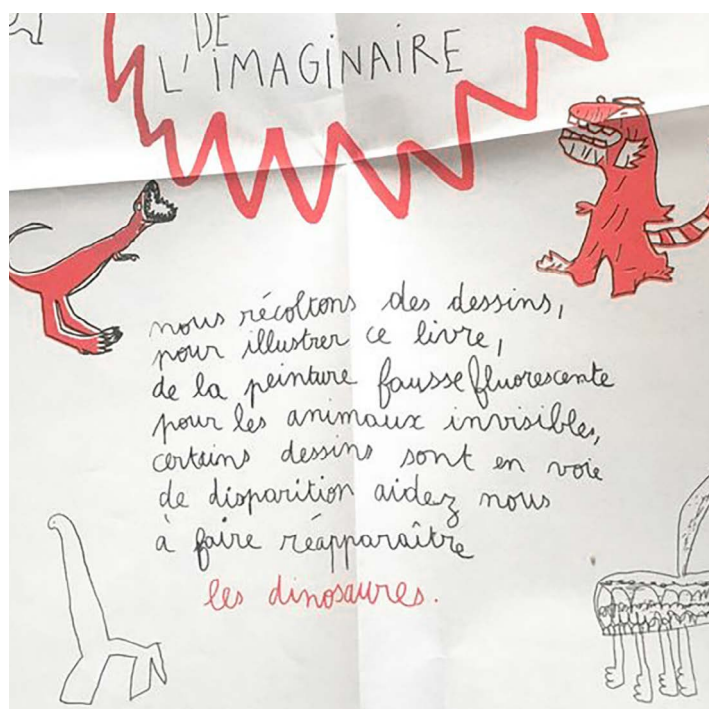 DE
L'iMAGiNAiRE
nous récoltons des dessins,
pour illustrer ce livre,
de la peinture fausse fluorescente
pour les animaux invisibles,
certains dessins sont en voie
de disparition aidez nous
à faire réapparaître
les dinosaures.